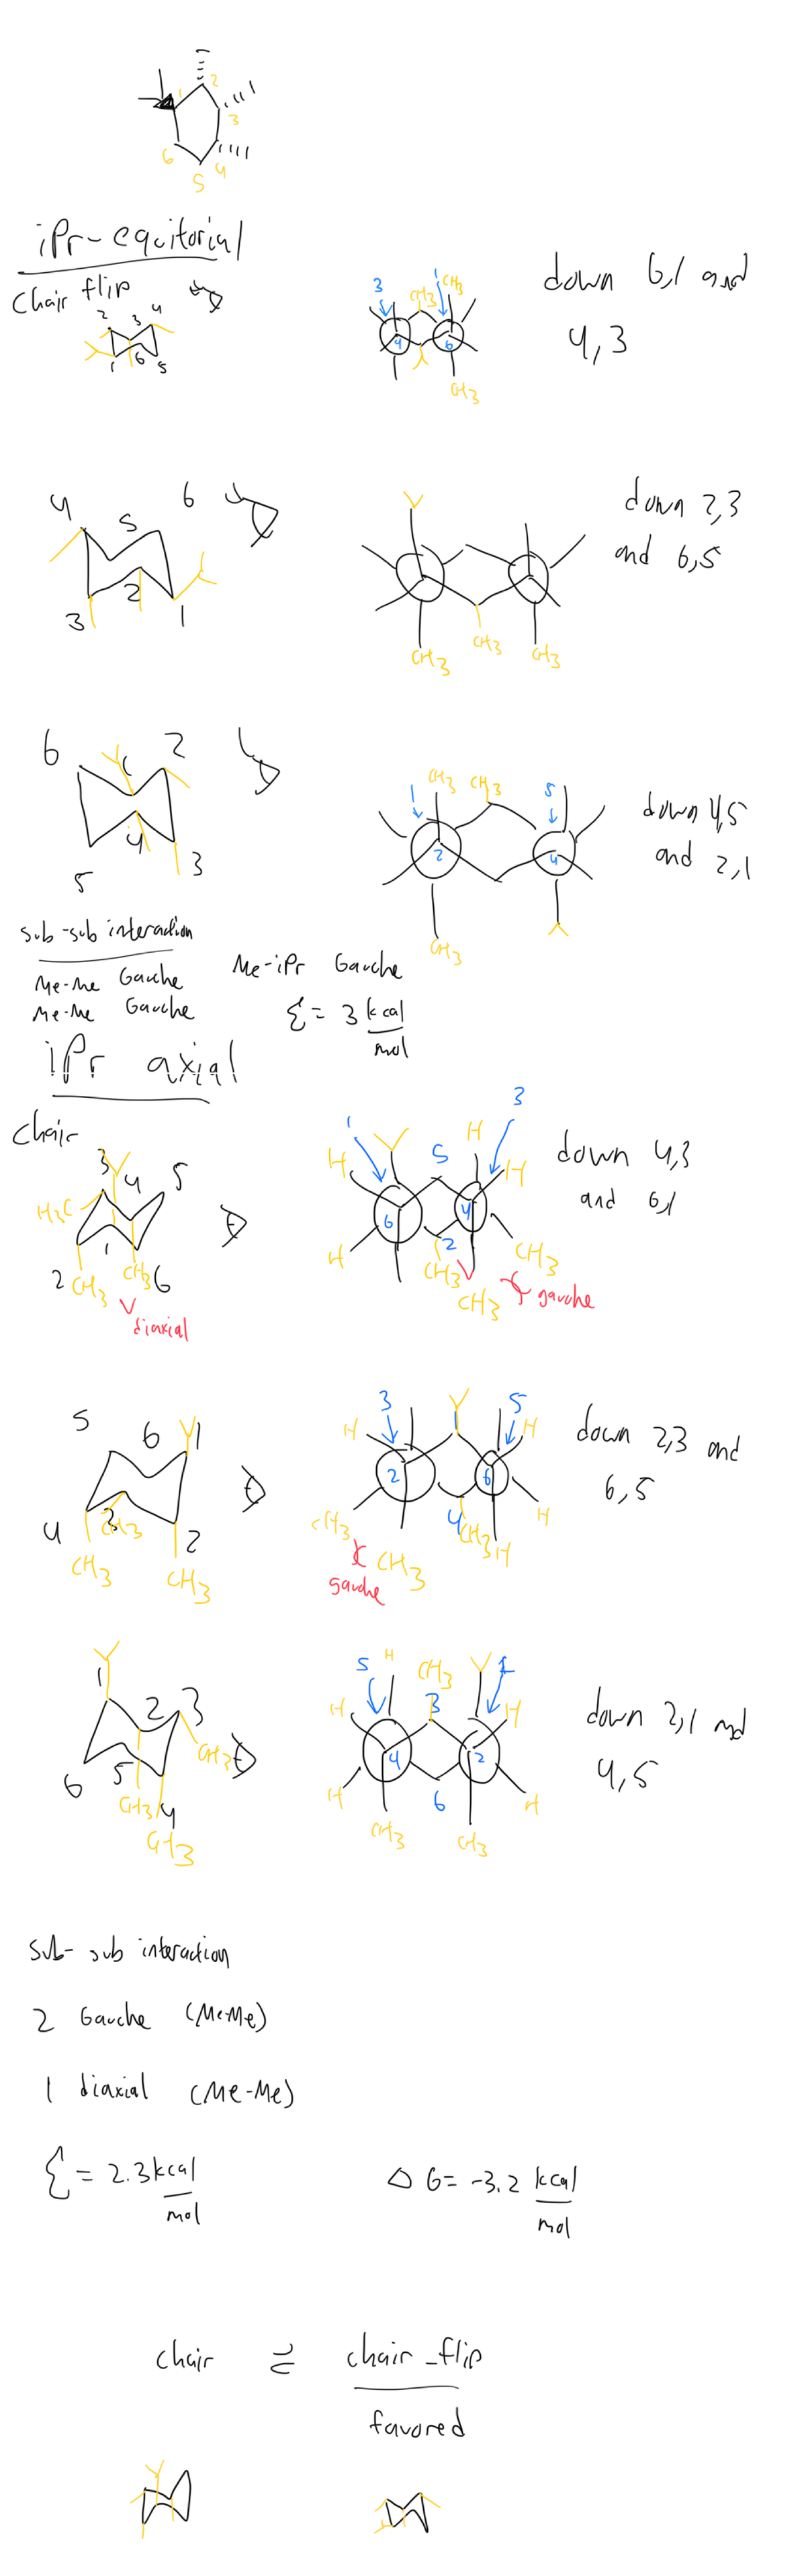 1
2
3
4
5
6
iPr-equitorial
Chair flip
2 3 4
1 6 5
3 1 CH3 CH3
4 6
CH3
down 6,1 and
4,3
4 5 6
3 2 1
CH3 CH3 CH3
down 2,3
and 6,5
6 1 2
5 4 3
1 CH3 CH3 5
2 4
CH3
down 4,5
and 2,1
sub-sub interaction
Me-Me Gauche
Me-Me Gauche
Me-iPr Gauche
Σ = 3 kcal
mol
iPr axial
Chair
3 4 5
H3C
1
2 CH3 CH3 6
diaxial
1 3
H 5 H H
6 4
H 2
CH3 CH3
CH3 gauche
down 4,3
and 6,1
5 6 1
4 3 CH3 2
CH3 CH3
3 5
H H
2 6
CH3 4 CH3 H H
CH3
gauche
down 2,3 and
6,5
1 2 3
CH3
6 5
CH3 4
CH3
5 H CH3 1
H 3 H
4 2
H 6 H
CH3 CH3
down 2,1 and
4,5
sub-sub interaction
2 Gauche (Me-Me)
1 diaxial (Me-Me)
Σ = 2.3 kcal
mol
△ G = -3.2 kcal
mol
chair ⇌ chair_flip
favored